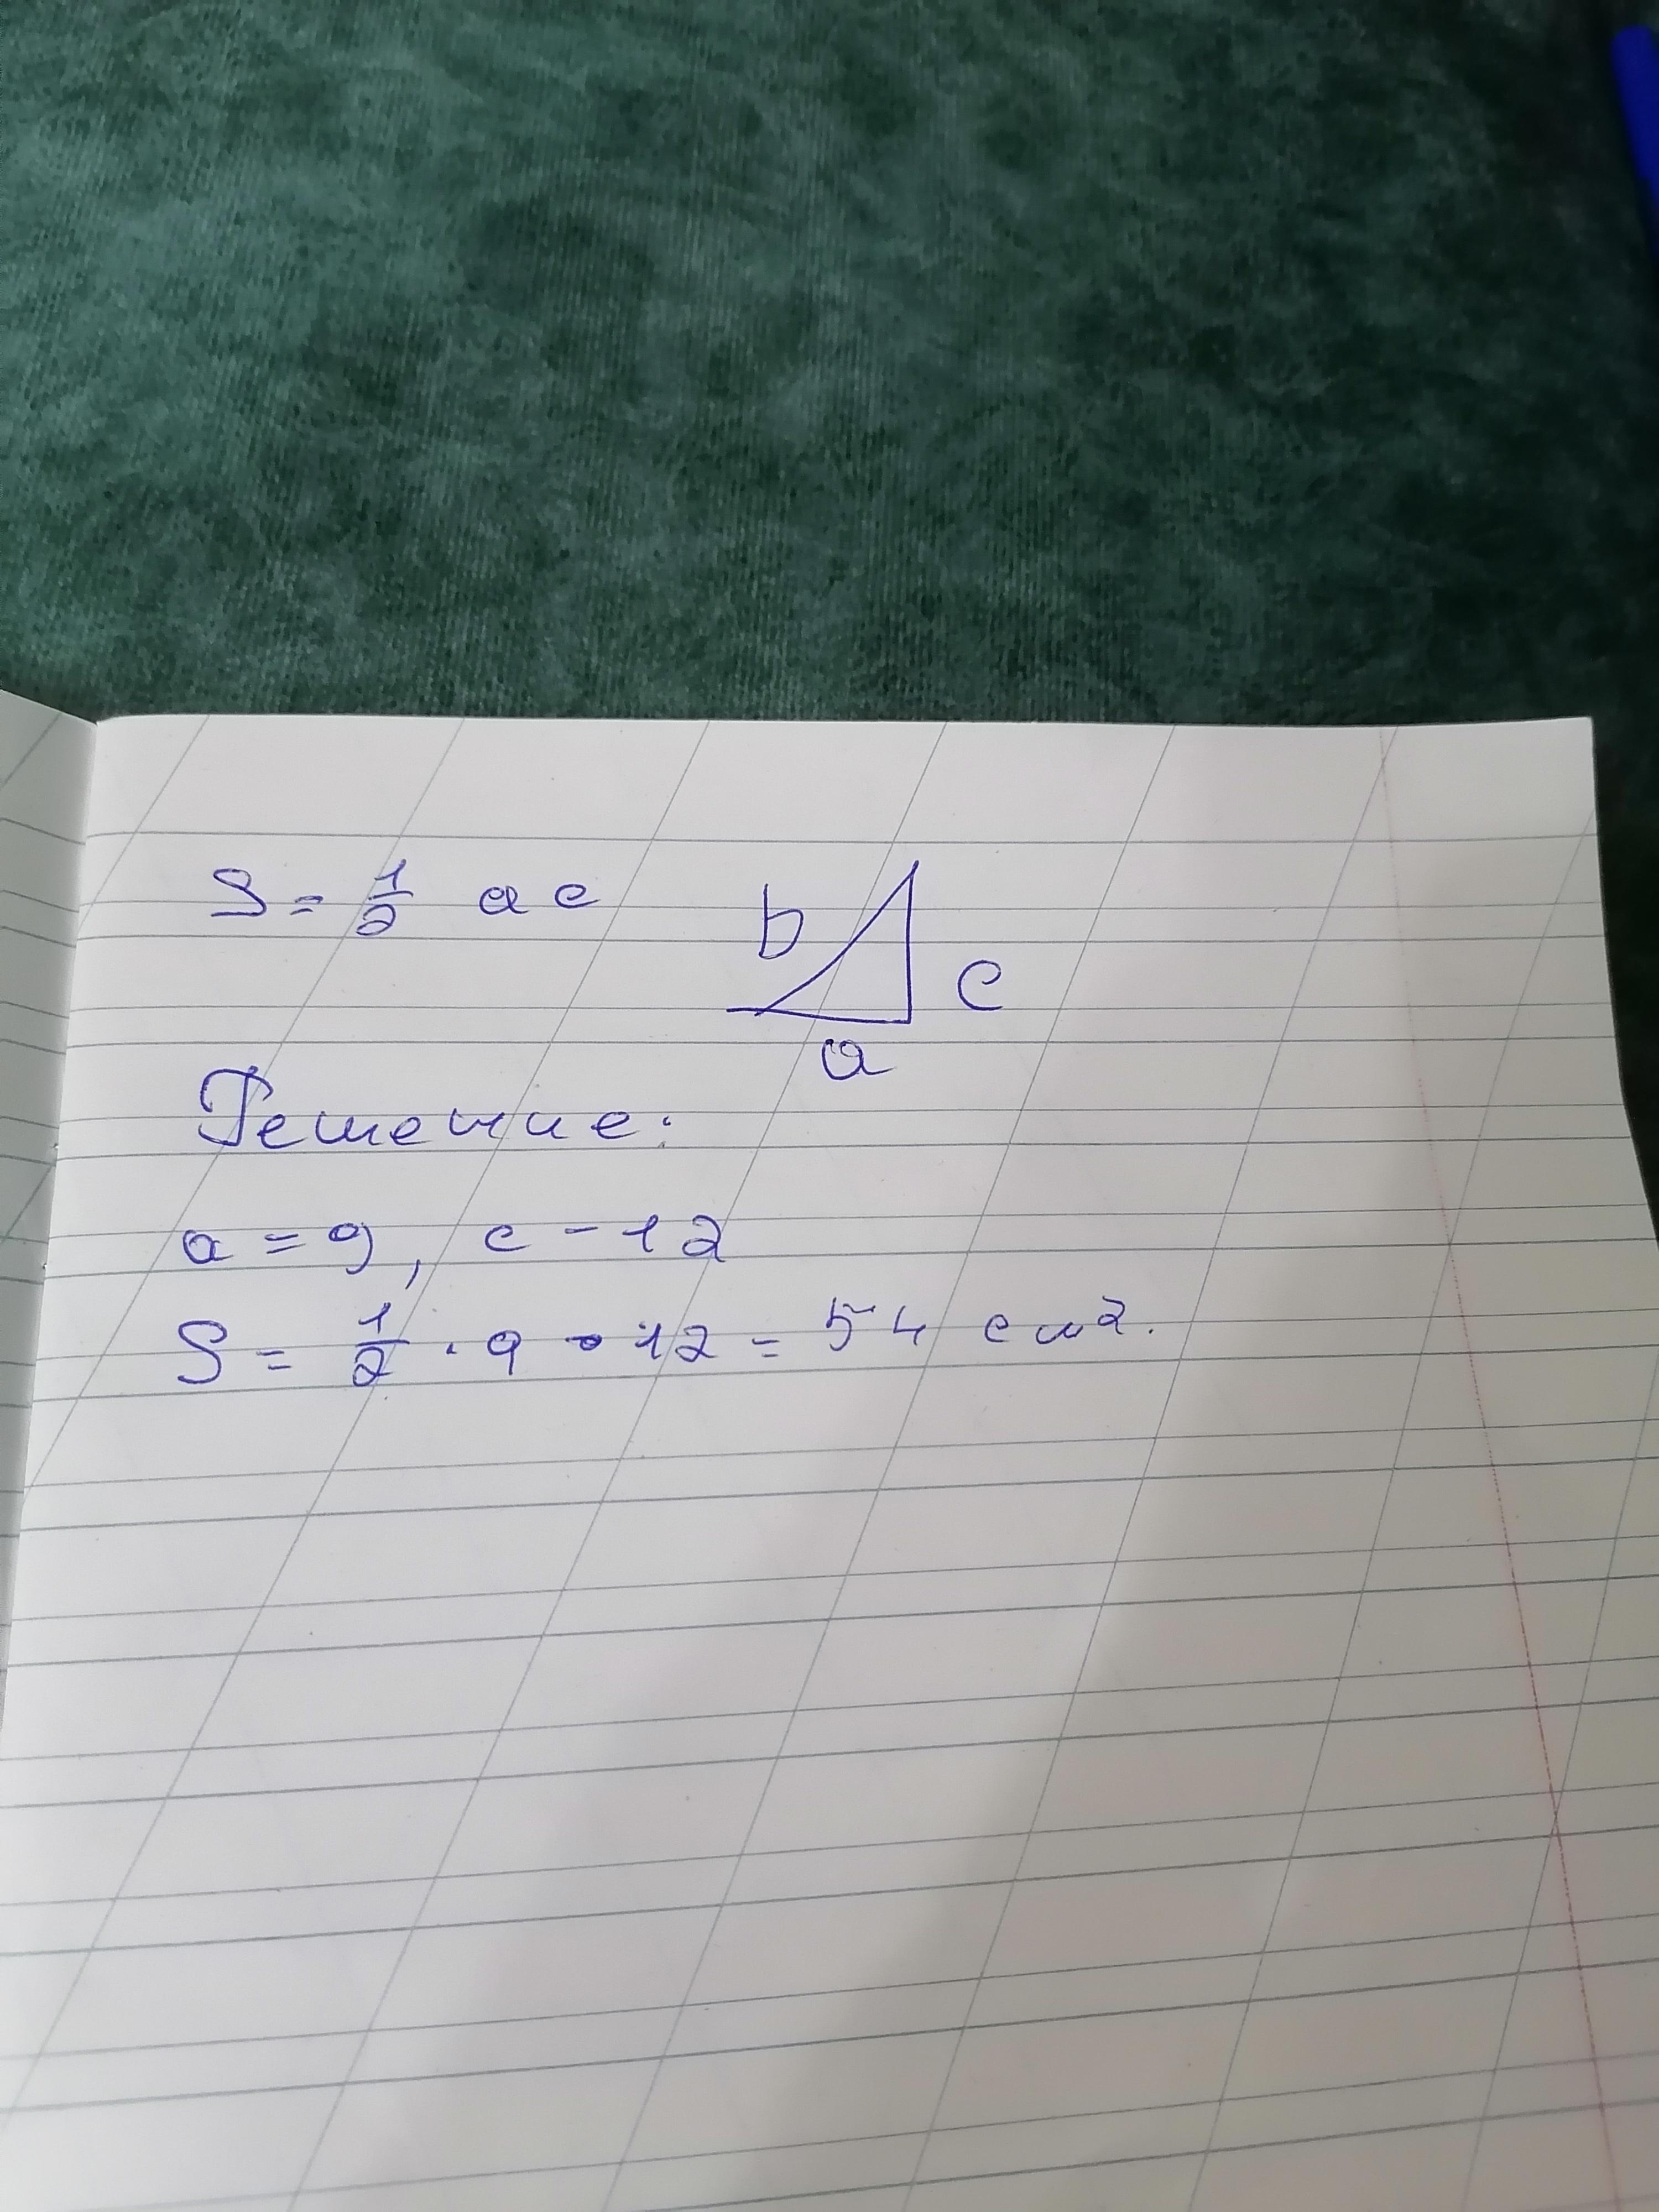 S = 1/2 ac
b
c
a
Решение:
a = 9, c - 12
S = 1/2 · 9 · 12 = 54 см².